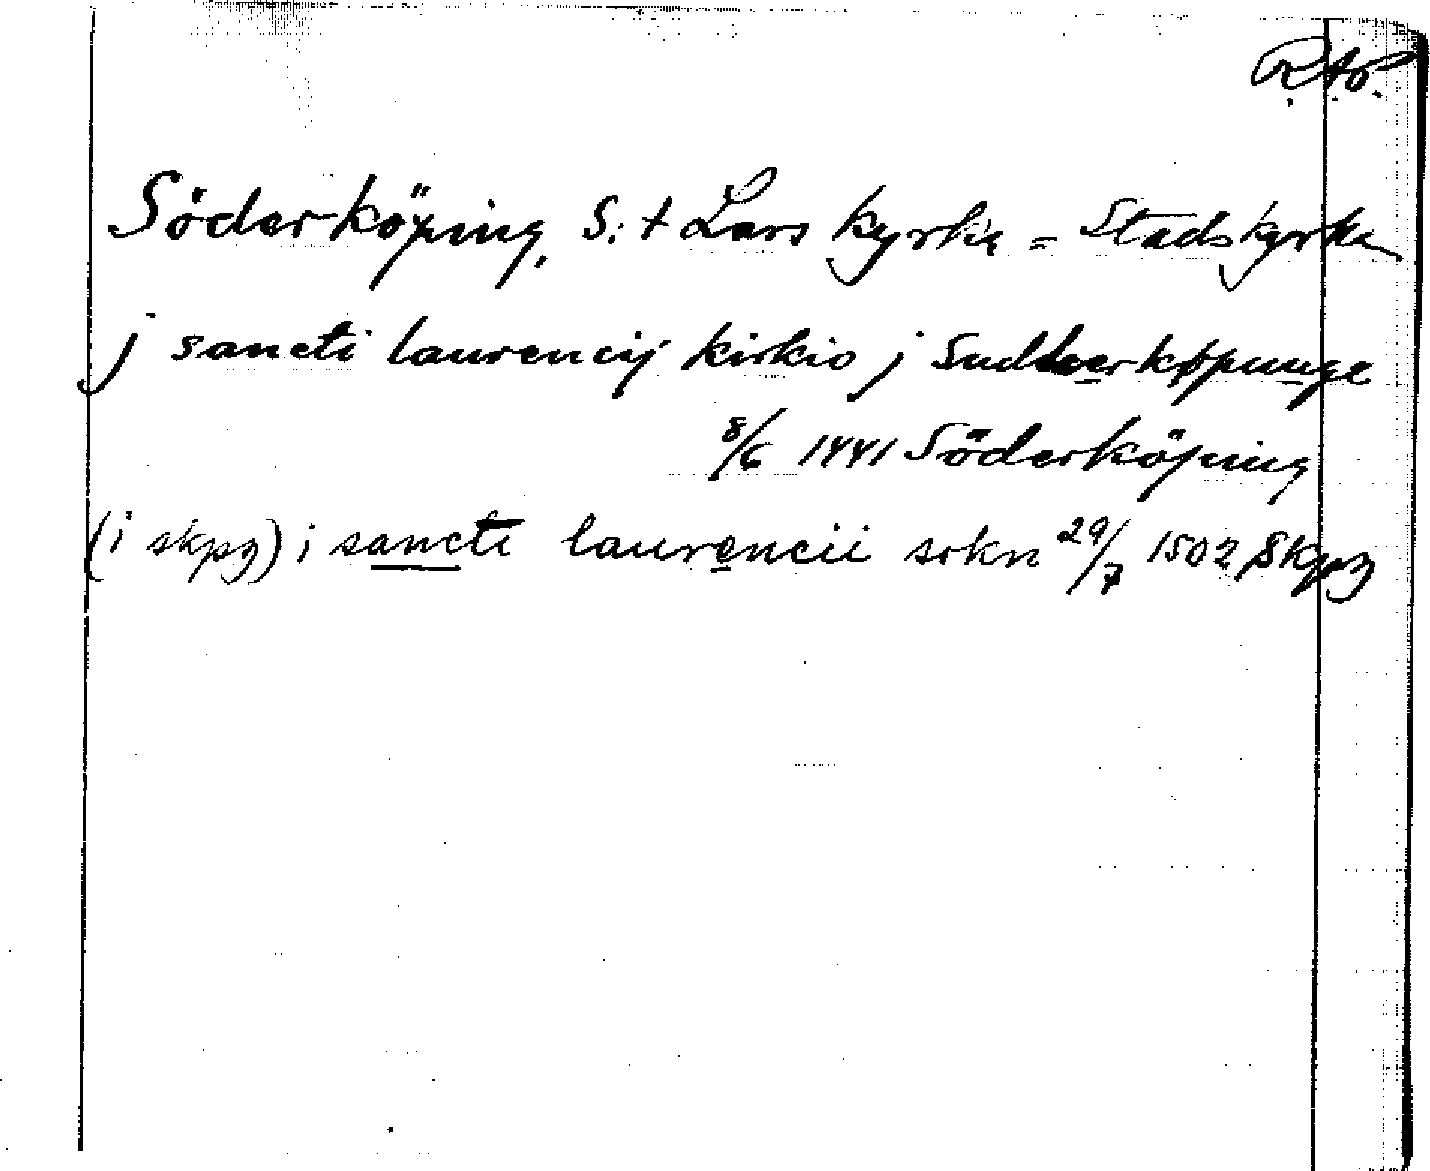 R.Ao.
Söderköping, S:t Lars kyrka = Stadskyrka
j sancti laurencij kirkio j Sudherköpunge
8/6 1441 Söderköping
(i skpg) i sancti laurencii sokn 29/7 1502 Skpg